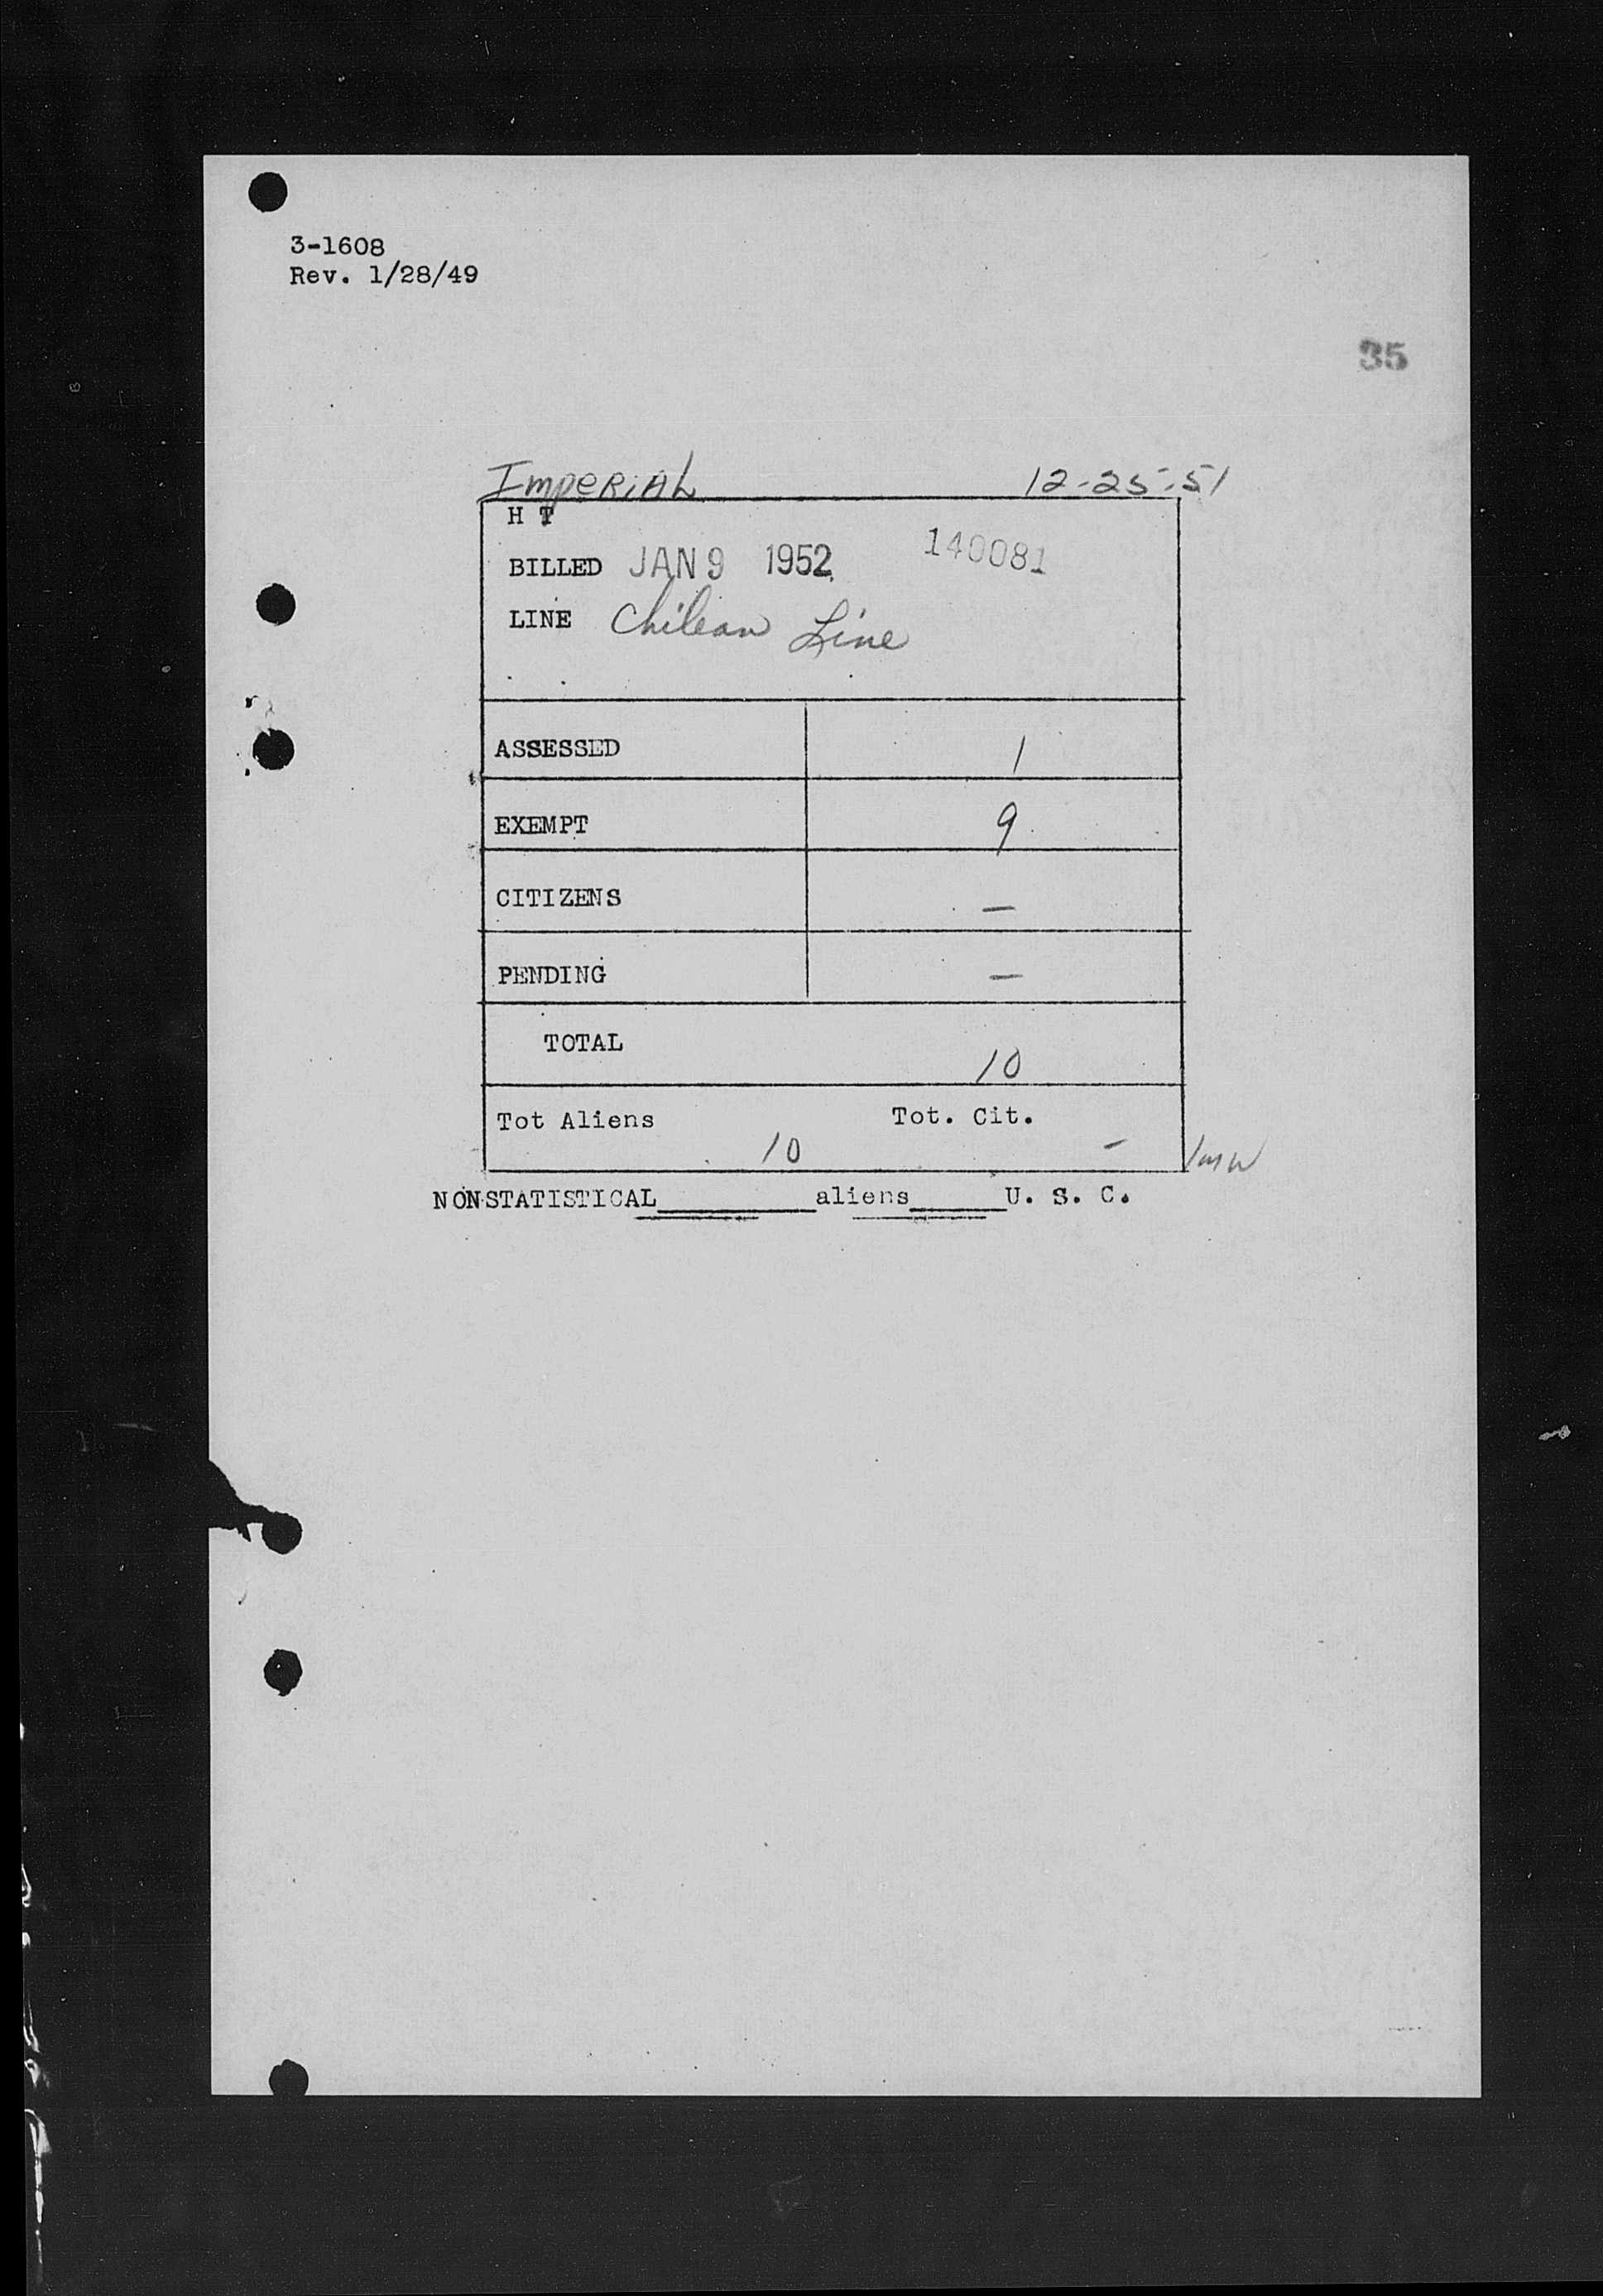 3-1608
Rev. 1/28/49
35
Imperial 12-25-51
H T
BILLED JAN 9 1952 140081
LINE Chilean Line
ASSESSED 1
EXEMPT 9
CITIZENS —
PENDING —
TOTAL 10
Tot Aliens 10 Tot. Cit. -
NONSTATISTICAL________aliens_____U. S. C.